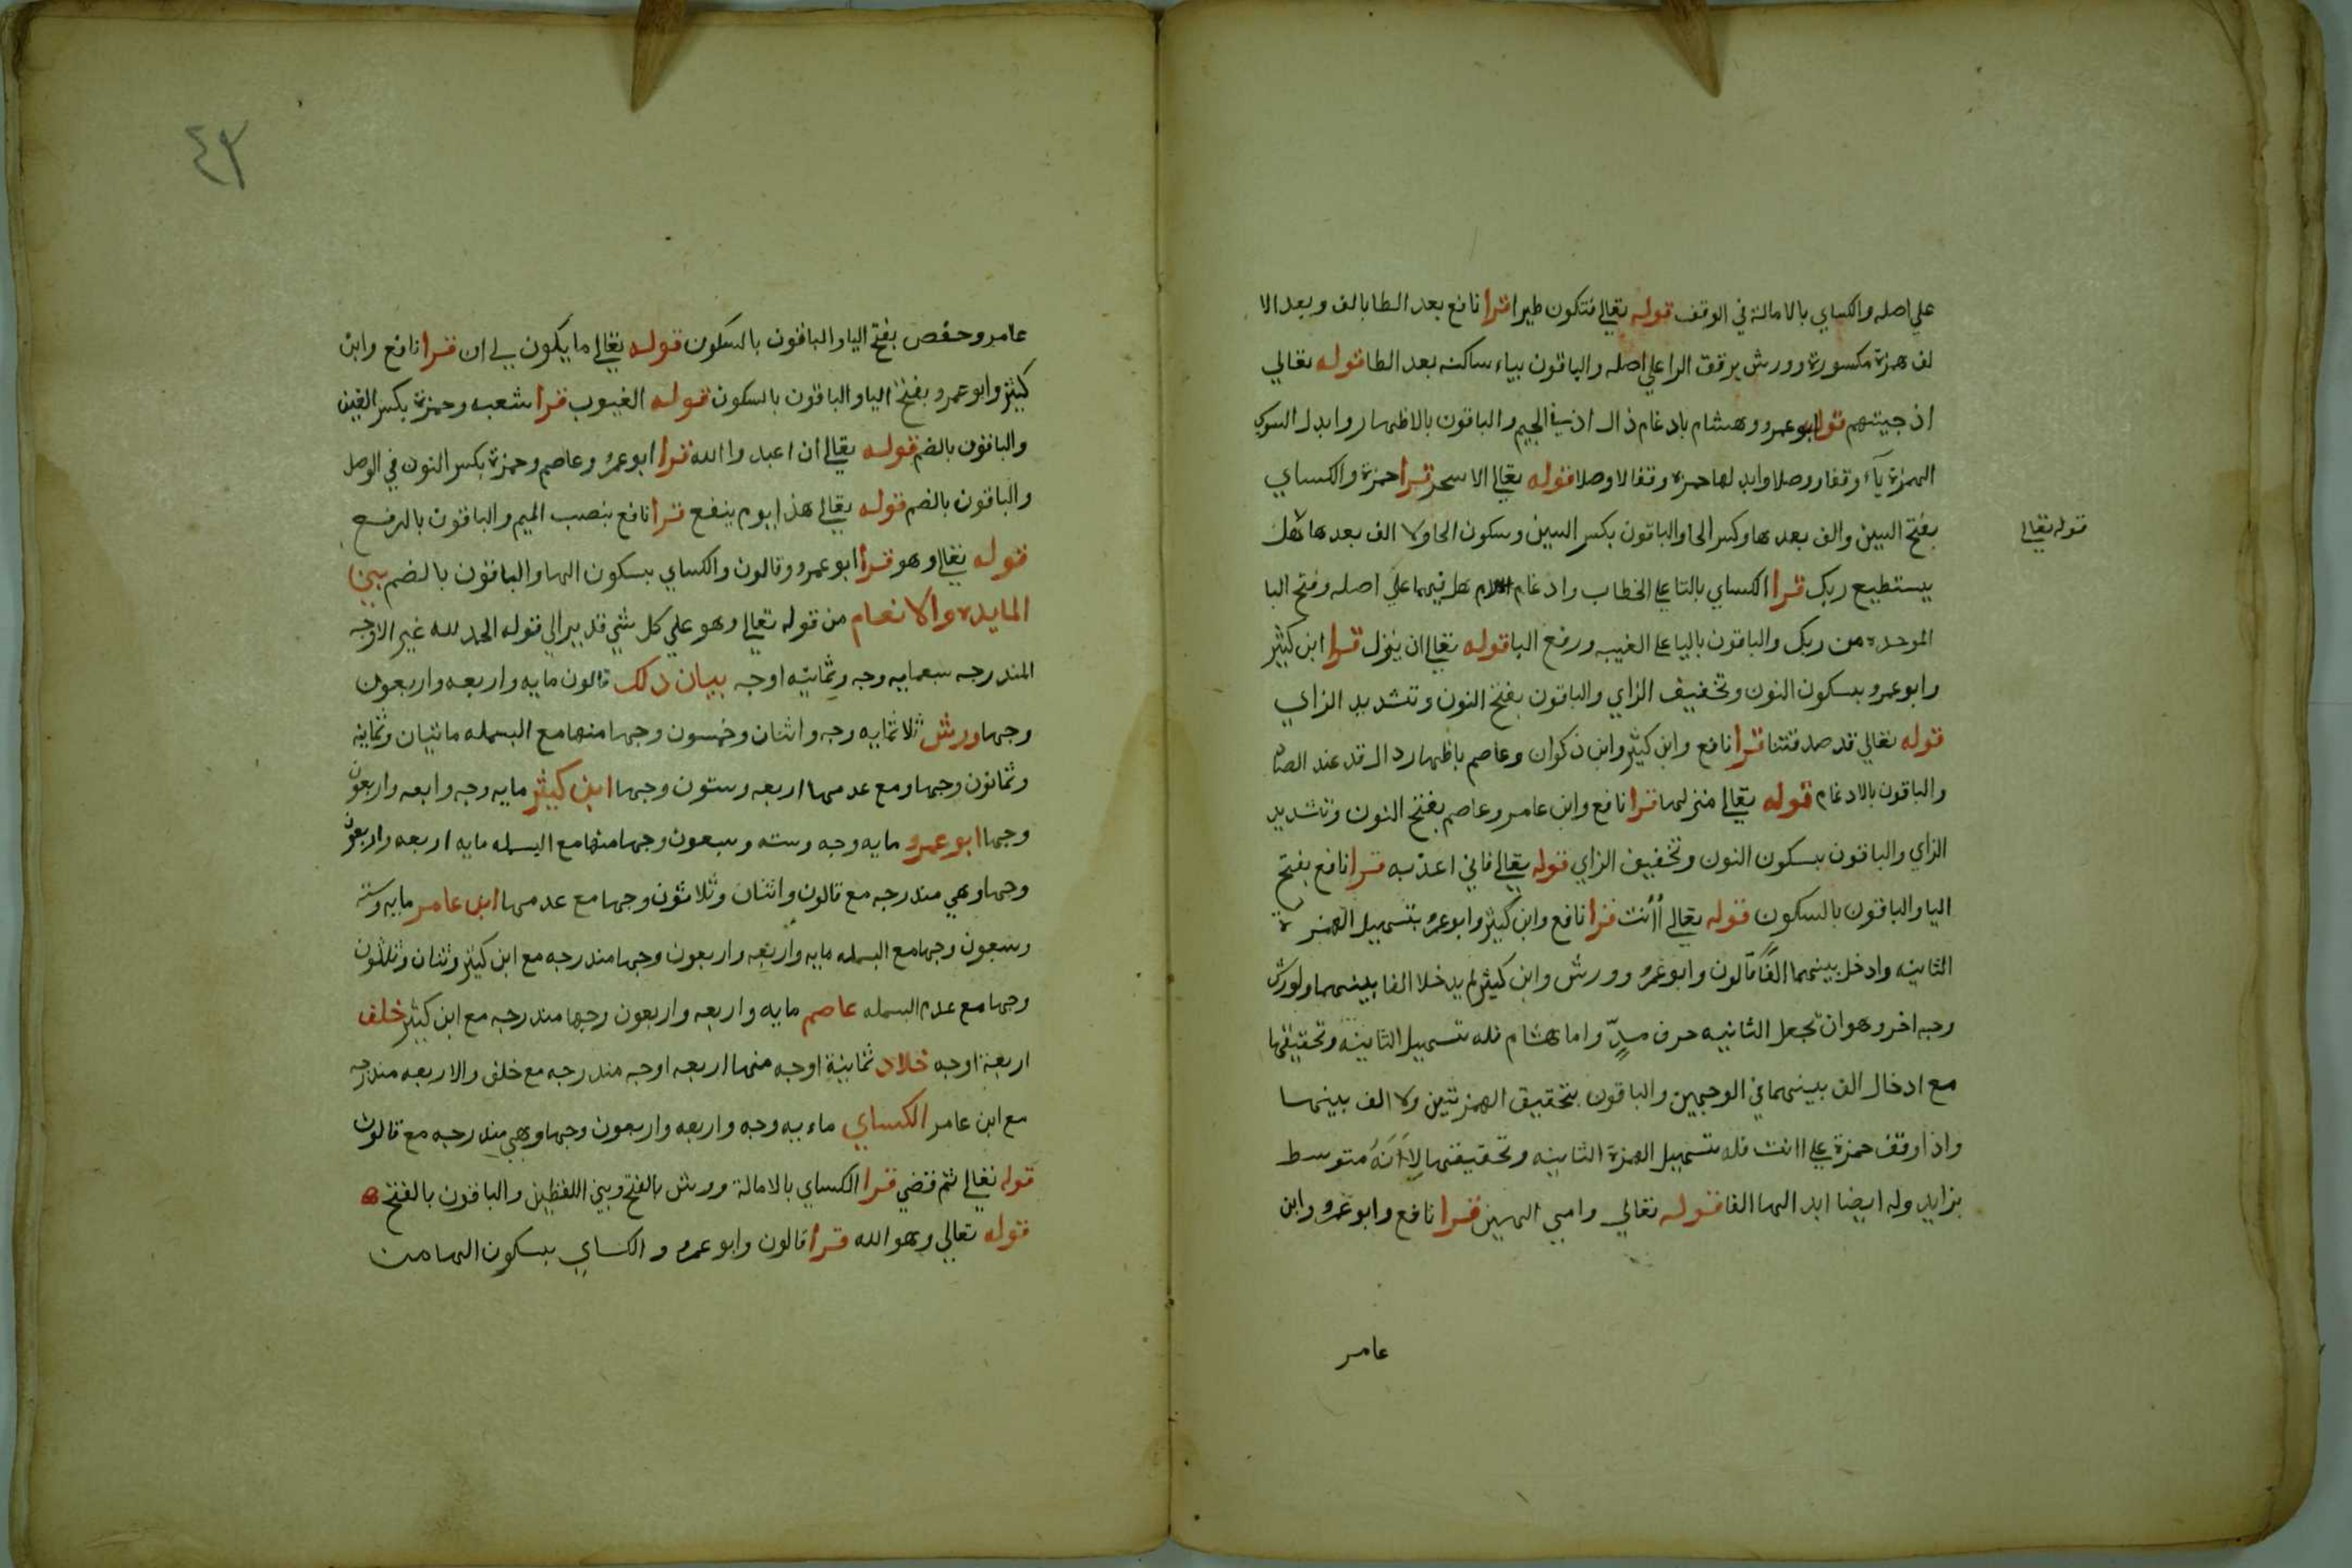 علي اصله والكساي بالامالة في الوقف قوله تعالي فتكون طيرا قرا نافع بعد الطا بالف وبعد الا
لف همزة مكسورة وورش يرقق الرا علي اصله والباقون بياء ساكنه بعد الطا قوله تعالي
اذ جيتهم قرا ابوعمرو وهشام بادغام ذال اذ في الجيم والباقون بالاظهار وابدل السوسي
الهمزة يآء وقفا ووصلا وابدلها حمزه وقفا لا وصلا قوله تعالي الا سحر قرا حمزة والكساي
بفتح السين والف بعدها وكسر الحا والباقون بكسر السين وسكون الحا ولا الف بعدها هل
قوله تعالي
يستطيع ربك قرا الكساي بالتا علي الخطاب وادغام اللام هل فيها علي اصله وفتح البا
الموحده من ربك والباقون باليا علي الغيبه ورفع البا قوله تعالي ان ينزل قرا ابن كثير
وابوعمرو بسكون النون وتخفيف الزاي والباقون بفتح النون وتشديد الزاي
قوله تعالي قد صدقتنا قرا نافع وابن كثير وابن ذكوان وعاصم باظهار دال قد عند الصاد
والباقون بالادغام قوله تعالي منزلها قرا نافع وابن عامر وعاصم بفتح النون وتشديد
الزاي والباقون بسكون النون وتخفيف الزاي قوله تعالي فاني اعذبه قرا نافع بفتح
اليا والباقون بالسكون قوله تعالي أأنت قرا نافع وابن كثير وابوعمرو بتسهيل الهمزة
الثانيه وادخل بينهما الفًا قالون وابوعمرو وورش وابن كثير لم يدخلا الفا بينهما ولورش
وجه اخر وهو ان تجعل الثانيه حرف مدٍّ واما هشام فله تسهيل الثانية وتحقيقها
مع ادخال الف بينهما في الوجهين والباقون بتحقيق الهمزتين ولا الف بينهما
واذا وقف حمزة علي اانت فله تسهيل الهمزة الثانيه وتحقيقها لِاَنَهُ متوسط
بزايد وله ايضا ابدالها الفا قوله تعالي وامي الهين قرا نافع وابوعمرو وابن
عامر
٤٣
عامر وحفص بفتح اليا والباقون بالسكون قوله تعالي ما يكون لي ان قرا نافع وابن
كثير وابوعمرو بفتح اليا والباقون بالسكون قوله الغيوب قرا شعبه وحمزة بكسر الغين
والباقون بالضم قوله تعالي ان اعبدوا الله قرا ابوعمرو وعاصم وحمزة بكسر النون في الوصل
والباقون بالضم قوله تعالي هذا يوم ينفع قرا نافع بنصب الميم والباقون بالرفع
قوله تعالي وهو قرا ابوعمرو وقالون والكساي بسكون الها والباقون بالضم بين
المايده والانعام من قوله تعالي وهو علي كل شي قدير الي قوله الحمد لله غير الاوجه
المندرجه سبعمايه وجه وثمانيه اوجه بيان ذلك قالون مايه واربعه واربعون
وجها ورش ثلاثمايه وجه واثنان وخمسون وجها منها مع البسمله مايتان وثمانيه
وثمانون وجها ومع عدمها اربعه وستون وجها ابن كثير مايه وجه وابعه واربعون
وجها ابوعمرو مايه وجه وسته وسبعون وجها منها مع البسمله مايه اربعه واربعون
وجها وهي مندرجه مع قالون واثنان وثلاثون وجها مع عدمها ابن عامر مايه وستة
وسبعون وجها مع البسمله مايه واربعه واربعون وجها مندرجه مع ابن كثير وثنان وثلثون
وجها مع عدم البسمله عاصم مايه واربعه واربعون وجها مندرجه مع ابن كثير خلف
اربعة اوجه خلاد ثمانية اوجه منها اربعه اوجه مندرجه مع خلف والاربعه مندرجه
مع ابن عامر الكساي ماءيه وجه واربعه واربعون وجها وهي مندرجه مع قالون
قوله تعالي ثم قضي قرا الكساي بالامالة وورش بالفتح وبين اللفظين والباقون بالفتح ه
قوله تعالي وهو الله قرا قالون وابوعمرو والكساي بسكون الها من